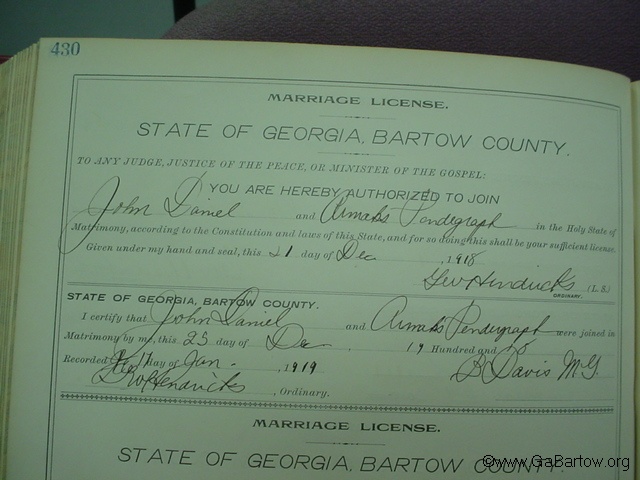 430
MARRIAGE LICENSE.
STATE OF GEORGIA, BARTOW COUNTY.
TO ANY JUDGE, JUSTICE OF THE PEACE, OR MINISTER OF THE GOSPEL:
YOU ARE HEREBY AUTHORIZED TO JOIN
John Daniel and Pendegraph in the Holy State of
Matrimony, according to the Constitution and laws of this State, and for so doing this shall be your sufficient license.
Given under my hand and seal, this 21 day of Dec , 1918
Geo Hendricks (L. S.)
ORDINARY.
STATE OF GEORGIA, BARTOW COUNTY.
I certify that John Daniel and Pendergraph were joined in
Matrimony by me, this 25 day of Dec , 19 Hundred and 18
Recorded day of Jan. , 1919 B Davis M.G.
Geo Hendricks , Ordinary.
MARRIAGE LICENSE.
STATE OF GEORGIA, BARTOW COUNTY.
©www.GaBartow.org